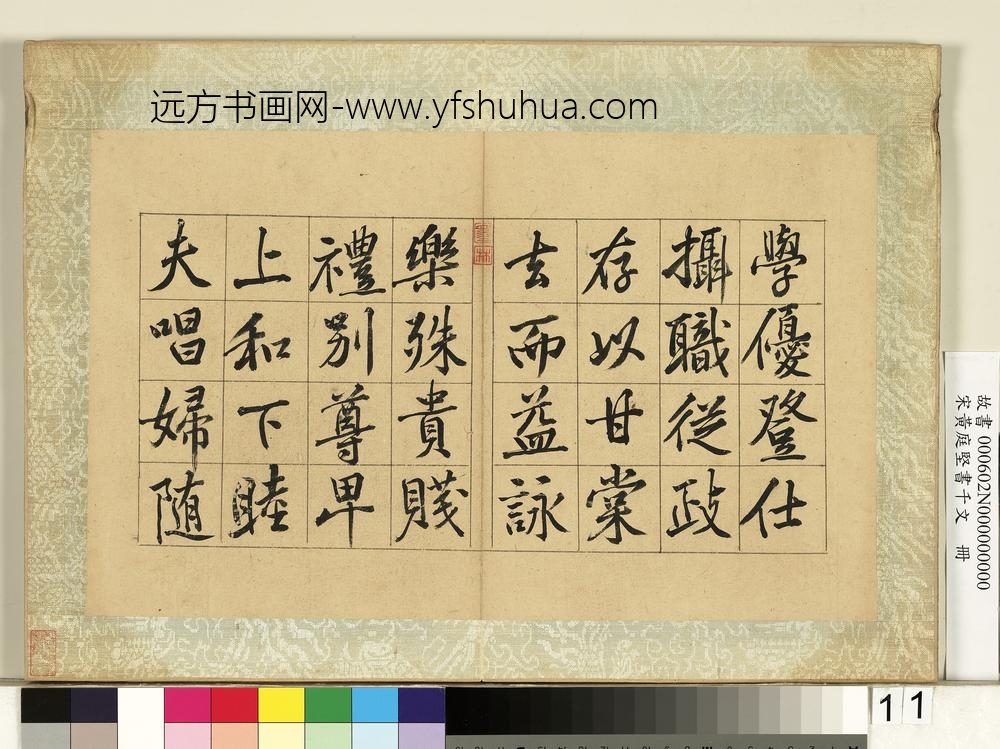 远方书画网-www.yfshuhua.com
學優登仕
攝職從政
存以甘棠
去而益詠
樂殊貴賤
禮别尊卑
上和下睦
夫唱婦随
故書 000602N000000000
宋黃庭堅書千文 冊
11